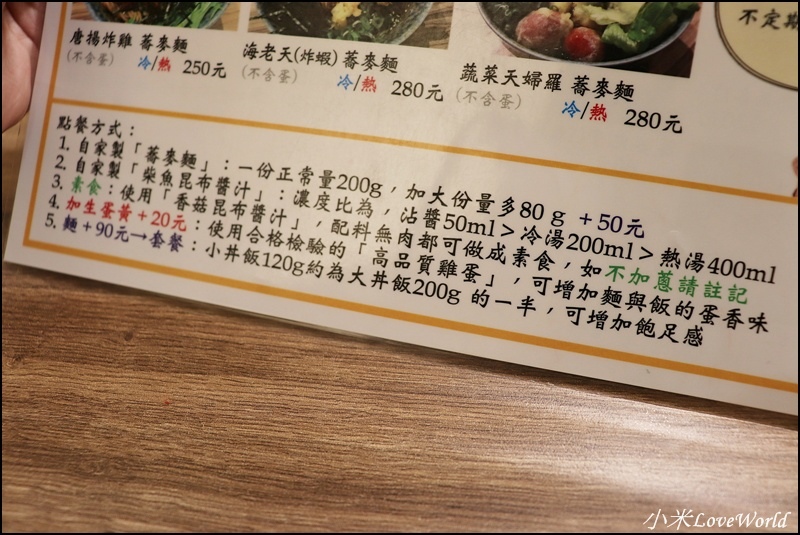 唐揚炸雞 蕎麥麵
(不含蛋) 冷/熱 250元
海老天(炸蝦) 蕎麥麵
(不含蛋) 冷/熱 280元
蔬菜天婦羅 蕎麥麵
(不含蛋) 冷/熱 280元
不定期
點餐方式：
1. 自家製「蕎麥麵」：一份正常量200g，加大份量多80 g +50元
2. 自家製「柴魚昆布醬汁」：濃度比為，沾醬50ml > 冷湯200ml > 熱湯400ml
3. 素食：使用「香菇昆布醬汁」，配料無肉都可做成素食，如不加蔥請註記
4. 加生蛋黃+20元：使用合格檢驗的「高品質雞蛋」，可增加麵與飯的蛋香味
5. 麵+90元→套餐：小丼飯120g約為大丼飯200g 的一半，可增加飽足感
小米LoveWorld